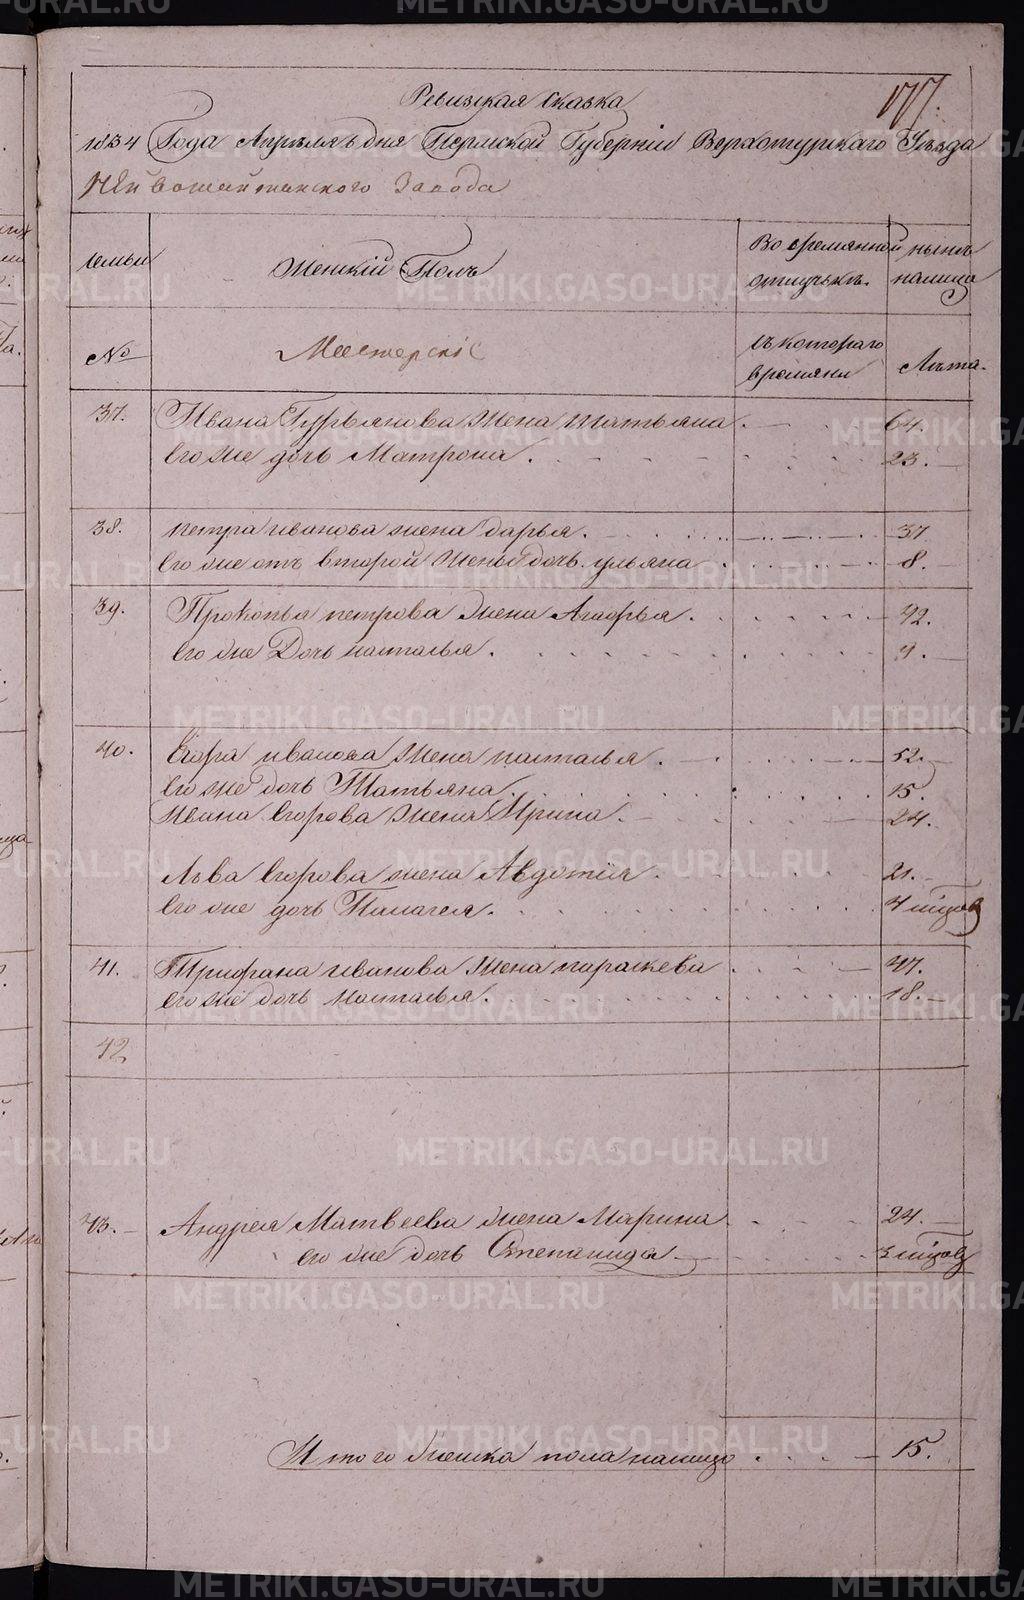 177.
Ревизская Сказка
1834 Года Апреля ъ дня Пермской Губернiи Верхотурскаго Уѣзда
Нейвошайтанского Завода
семьи
Женскiй Полъ
Во временной отлучькѣ.
нынѣ на лицо
№
Мастерскiе
съ котораго времяни
Лѣта.
37. Ивана Гурьянова жена татьяна 64.
Его же дочь Матрона. 23.
38. петра иванова жена дарья. 37
Его же отъ второй жены дочь ульяна 8.
39. Прокопья петрова жена Агафья. 42.
Его же Дочь насталья. 9.
40. Егора иванова жена насталья. 52.
Его же дочь Татьяна. 15.
Ивана Егорова жена Ирина. 24.
Льва Егорова жена Авдотiя. 21.
Его же дочь Палагея. 4 мѣцов
41. Трифана иванова жена параскева 47.
Его же дочь насталья. 18.
42
43. Андрея Матвеева жена Марина 24.
его же дочь Степанида. 3 мѣцов
Итого женска пола налицо 15.
METRIKI.GASO-URAL.RU